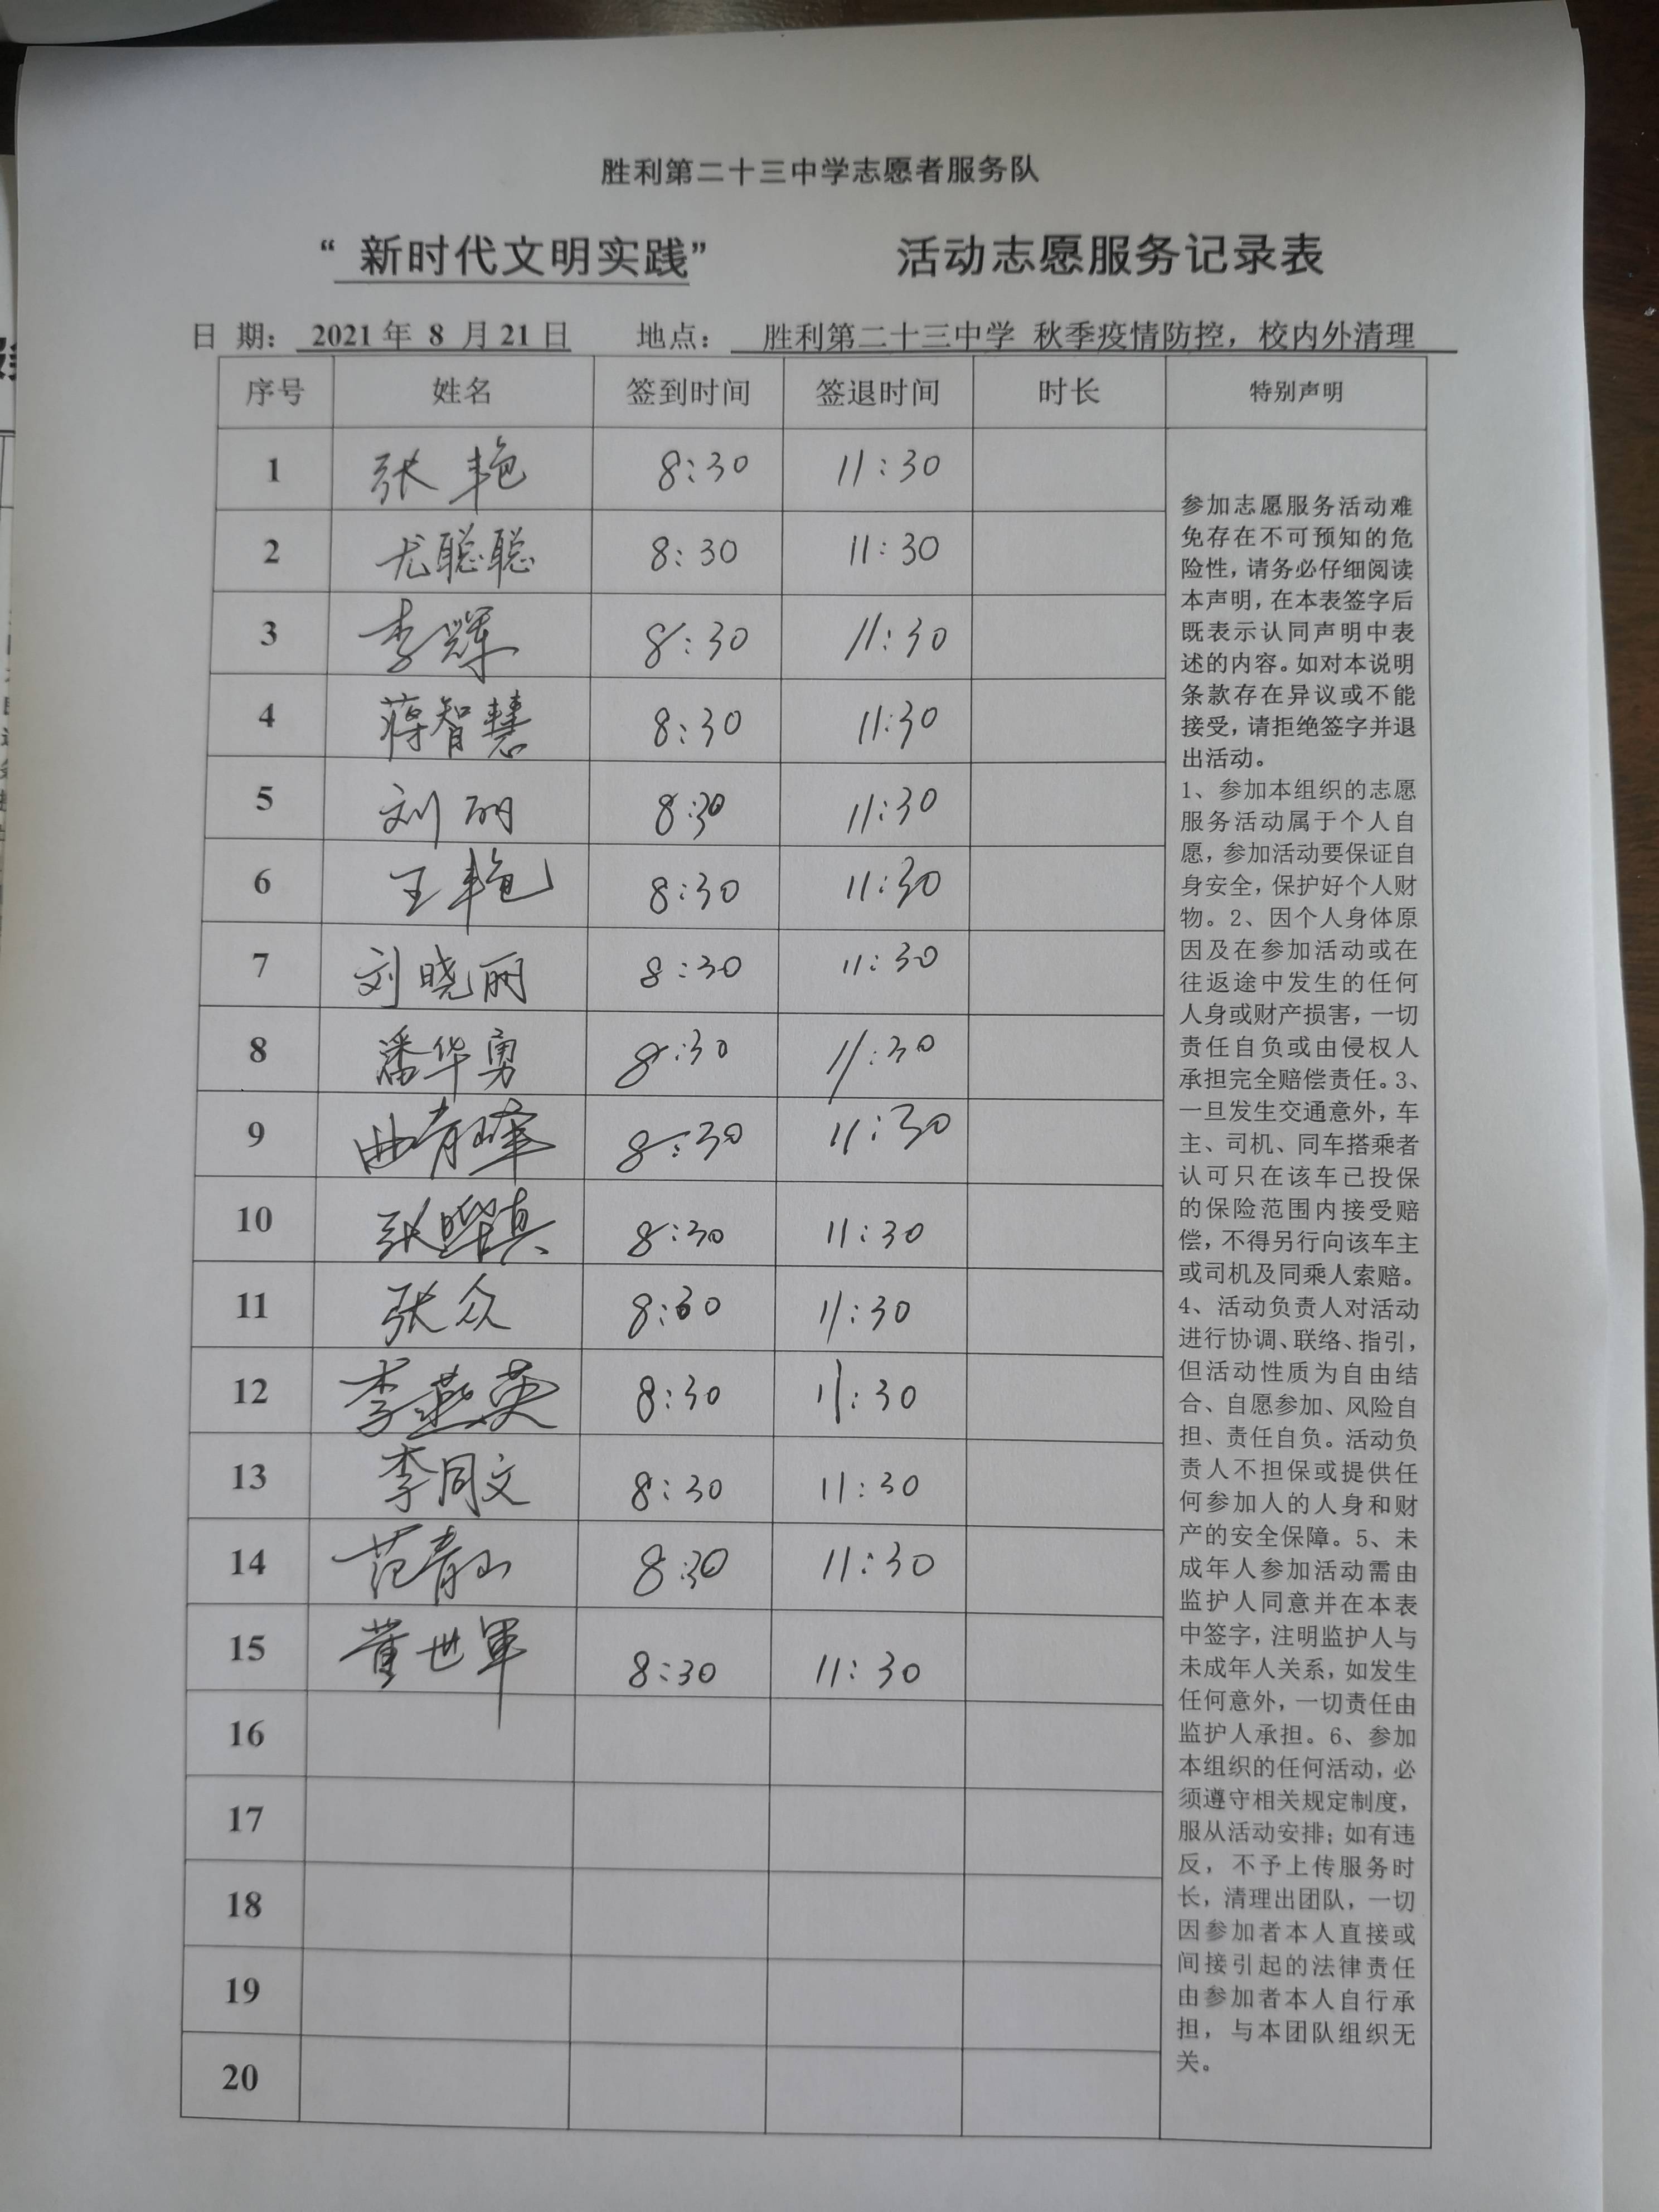 胜利第二十三中学志愿者服务队
“ 新时代文明实践” 活动志愿服务记录表
日 期： 2021 年 8 月 21 日 地点： 胜利第二十三中学 秋季疫情防控，校内外清理
序号 姓名 签到时间 签退时间 时长 特别声明
1 张艳 8:30 11:30
2 尤聪聪 8:30 11:30
3 李辉 8:30 11:30
4 蒋智慧 8:30 11:30
5 刘丽 8:30 11:30
6 王艳 8:30 11:30
7 刘晓丽 8:30 11:30
8 潘华勇 8:30 11:30
9 曲青峰 8:30 11:30
10 张 8:30 11:30
11 张众 8:30 11:30
12 李燕英 8:30 11:30
13 李同文 8:30 11:30
14 范青山 8:30 11:30
15 董世军 8:30 11:30
16
17
18
19
20
参加志愿服务活动难
免存在不可预知的危
险性，请务必仔细阅读
本声明，在本表签字后
既表示认同声明中表
述的内容。如对本说明
条款存在异议或不能
接受，请拒绝签字并退
出活动。
1、参加本组织的志愿
服务活动属于个人自
愿，参加活动要保证自
身安全，保护好个人财
物。2、因个人身体原
因及在参加活动或在
往返途中发生的任何
人身或财产损害，一切
责任自负或由侵权人
承担完全赔偿责任。3、
一旦发生交通意外，车
主、司机、同车搭乘者
认可只在该车已投保
的保险范围内接受赔
偿，不得另行向该车主
或司机及同乘人索赔。
4、活动负责人对活动
进行协调、联络、指引，
但活动性质为自由结
合、自愿参加、风险自
担、责任自负。活动负
责人不担保或提供任
何参加人的人身和财
产的安全保障。5、未
成年人参加活动需由
监护人同意并在本表
中签字，注明监护人与
未成年人关系，如发生
任何意外，一切责任由
监护人承担。6、参加
本组织的任何活动，必
须遵守相关规定制度，
服从活动安排；如有违
反，不予上传服务时
长，清理出团队，一切
因参加者本人直接或
间接引起的法律责任
由参加者本人自行承
担，与本团队组织无
关。